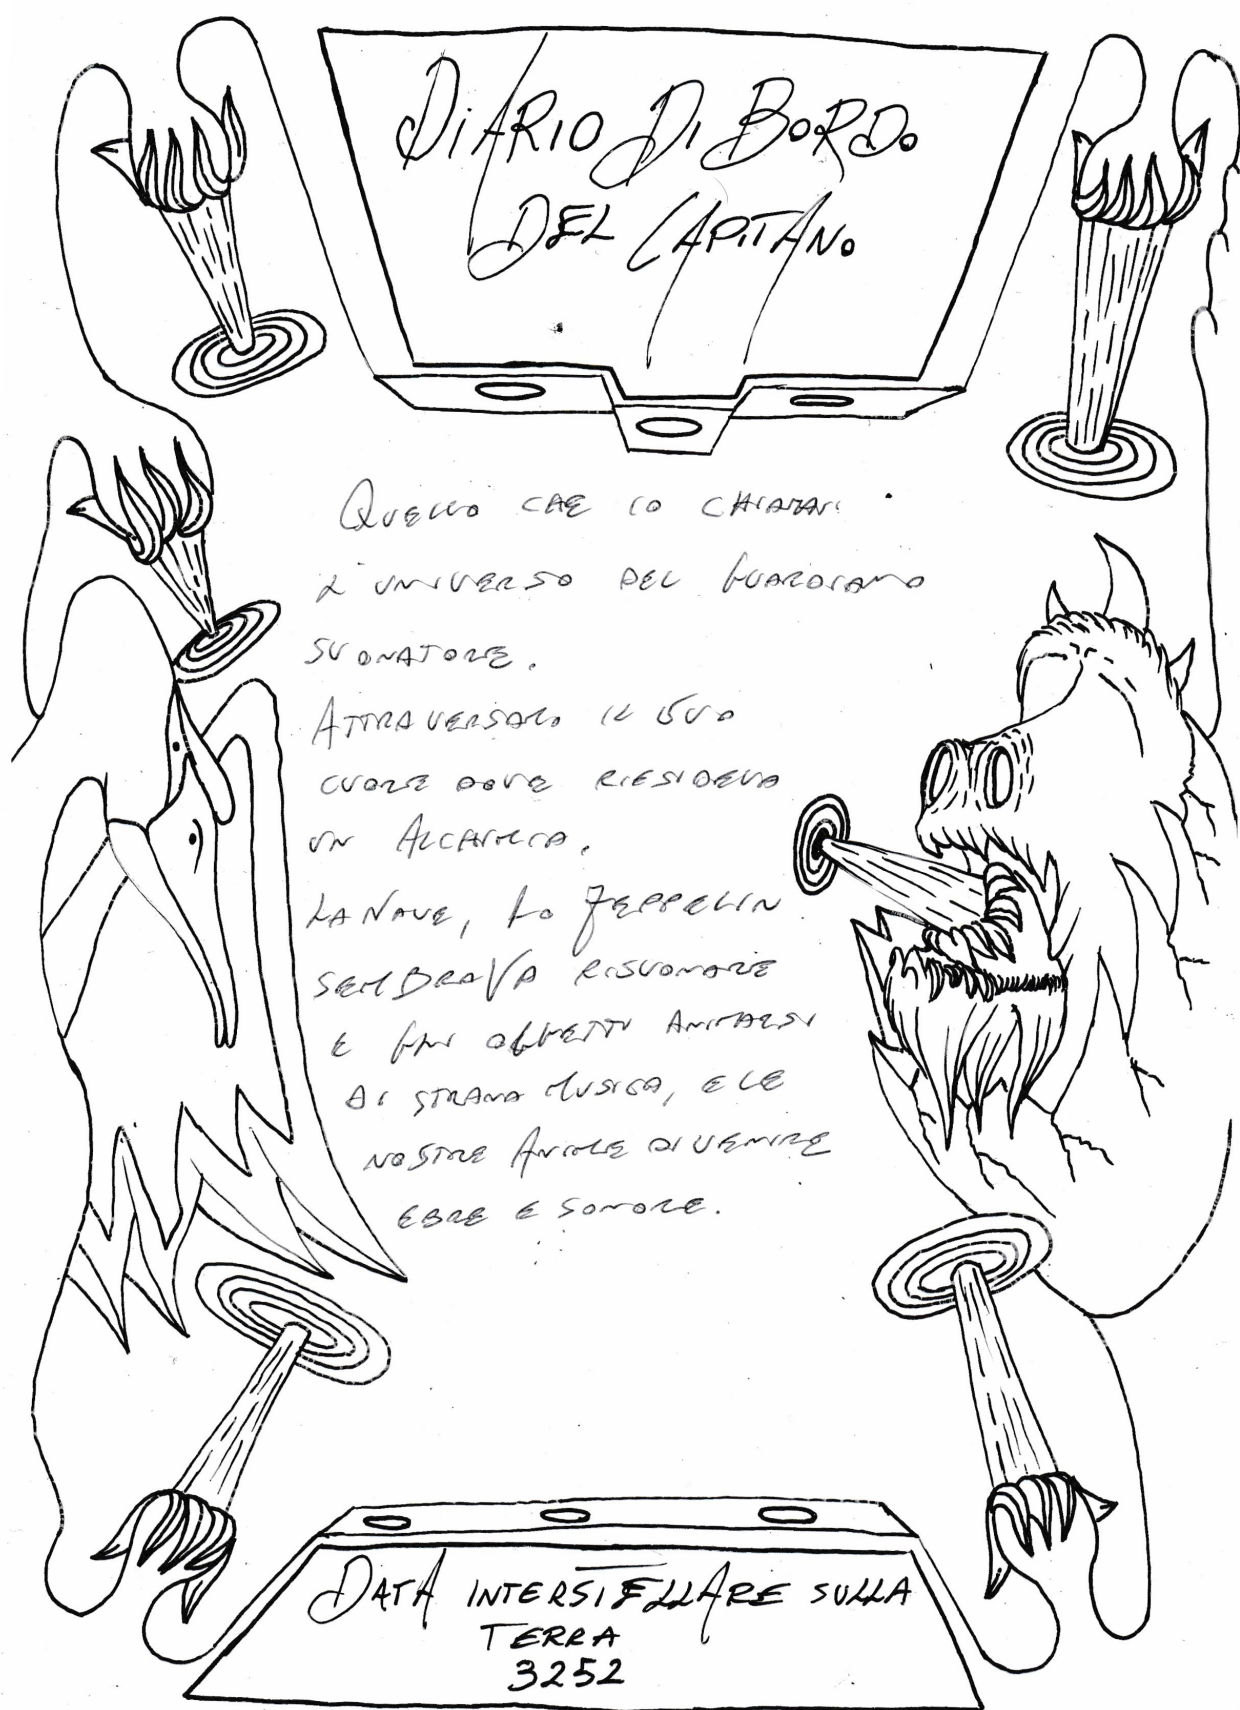 DIARIO DI BORDO
DEL CAPITANO
QUELLO CHE IO CHIAMAI
L'UNIVERSO DEL GUARDIANO
SUONATORE.
ATTRAVERSAI IL SUO
CUORE DOVE RIESIDEVA
UN ALCHIMIA.
LA NAVE, LO ZEPPELIN
SEMBRAVA RISUONARE
E GLI OGGETTI ANIMARSI
DI STRANA MUSICA, E LE
NOSTRE ANIME DIVENIRE
EBRE E SONORE.
DATA INTERSTELLARE SULLA
TERRA
3252